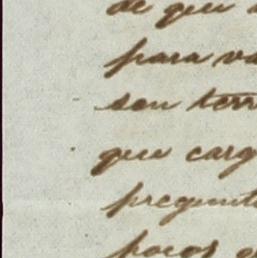 de que
para va
seu terr
que carg
pregunt
pocos